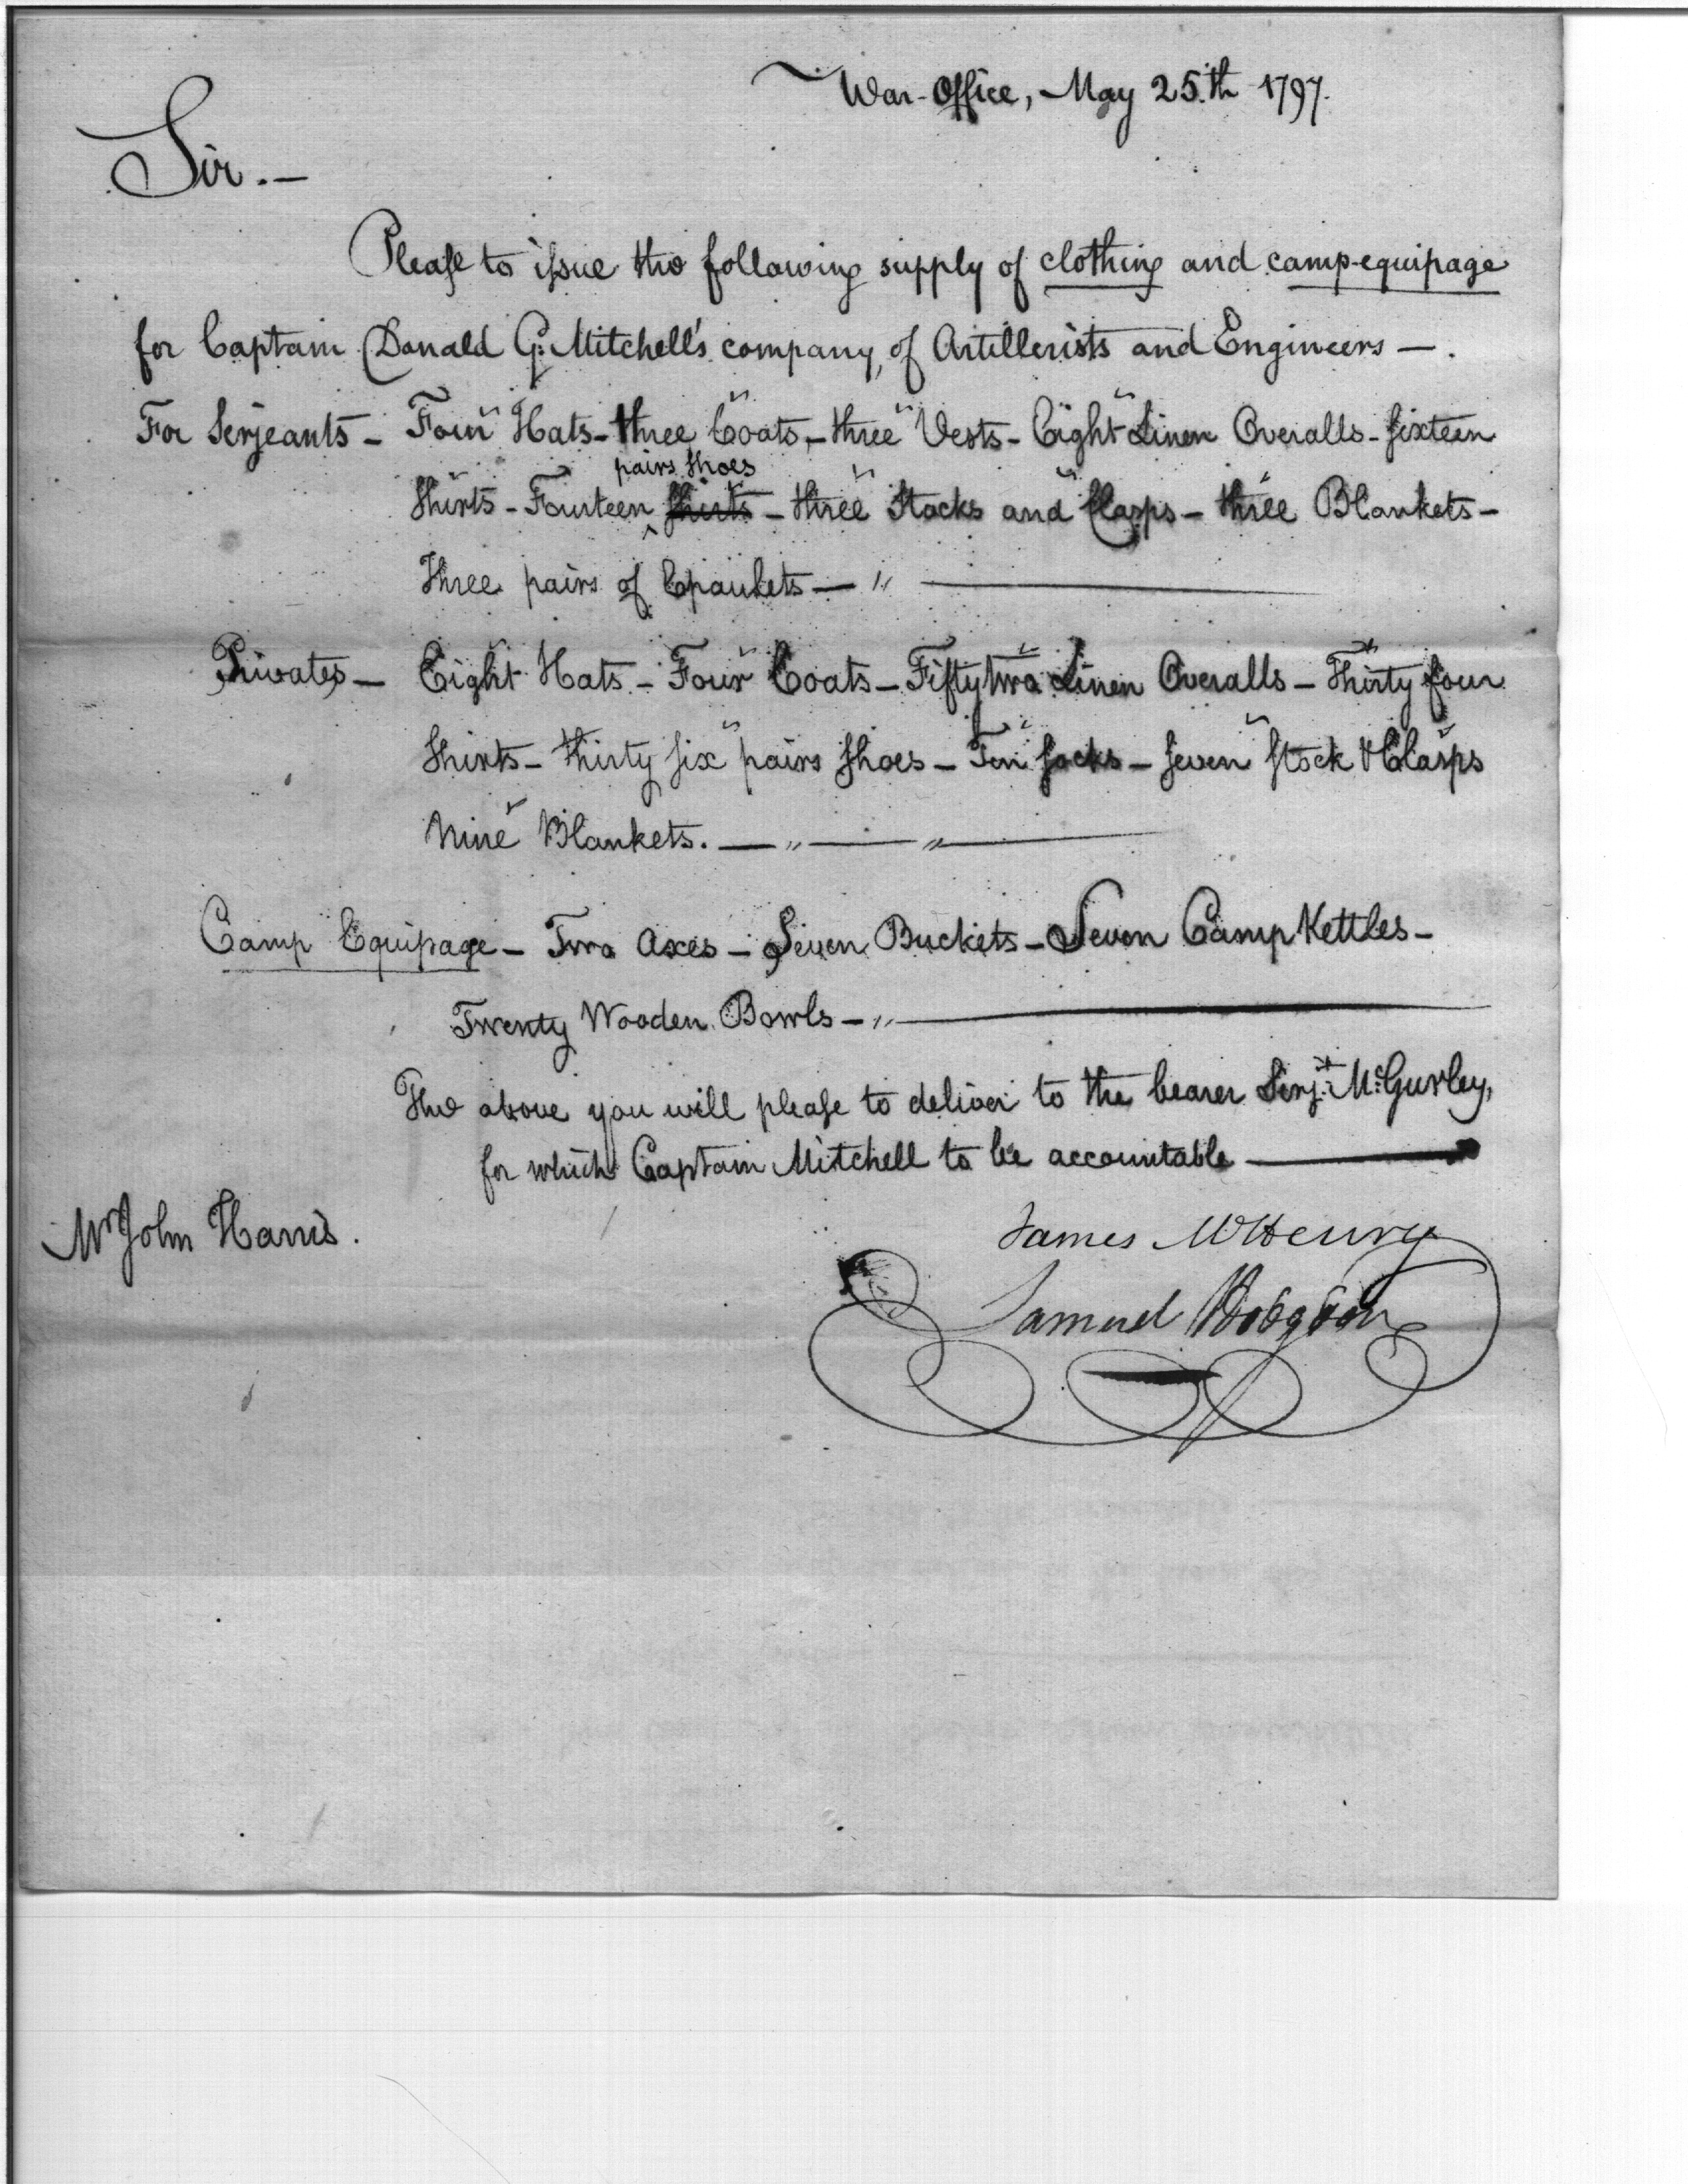 War-Office, May 25.th 1797.
Sir.—
Please to issue the following supply of clothing and camp-equipage
for Captain Donald G: Mitchell's company, of Artillerists and Engineers —.
For Serjeants – Four Hats – three Coats, – three Vests – Eight Linen Overalls – sixteen
pairs shoes
Shirts – Fourteen shirts – three Stocks and Clasps – three Blankets –
Three pairs of Epaulets — "
Privates — Eight Hats – Four Coats – Fifty two Linen Overalls – Thirty four
Shirts – thirty six pairs shoes – Ten socks – seven stock & Clasps
Nine Blankets. — " — "
Camp Equipage – Two Axes – Seven Buckets – Seven Camp Kettles –
Twenty Wooden Bowls – "
The above you will please to deliver to the bearer Serjt: Mc:Gurley,
for which Captain Mitchell to be accountable —
Mr John Harris.
James McHenry
Samuel Hodgdon